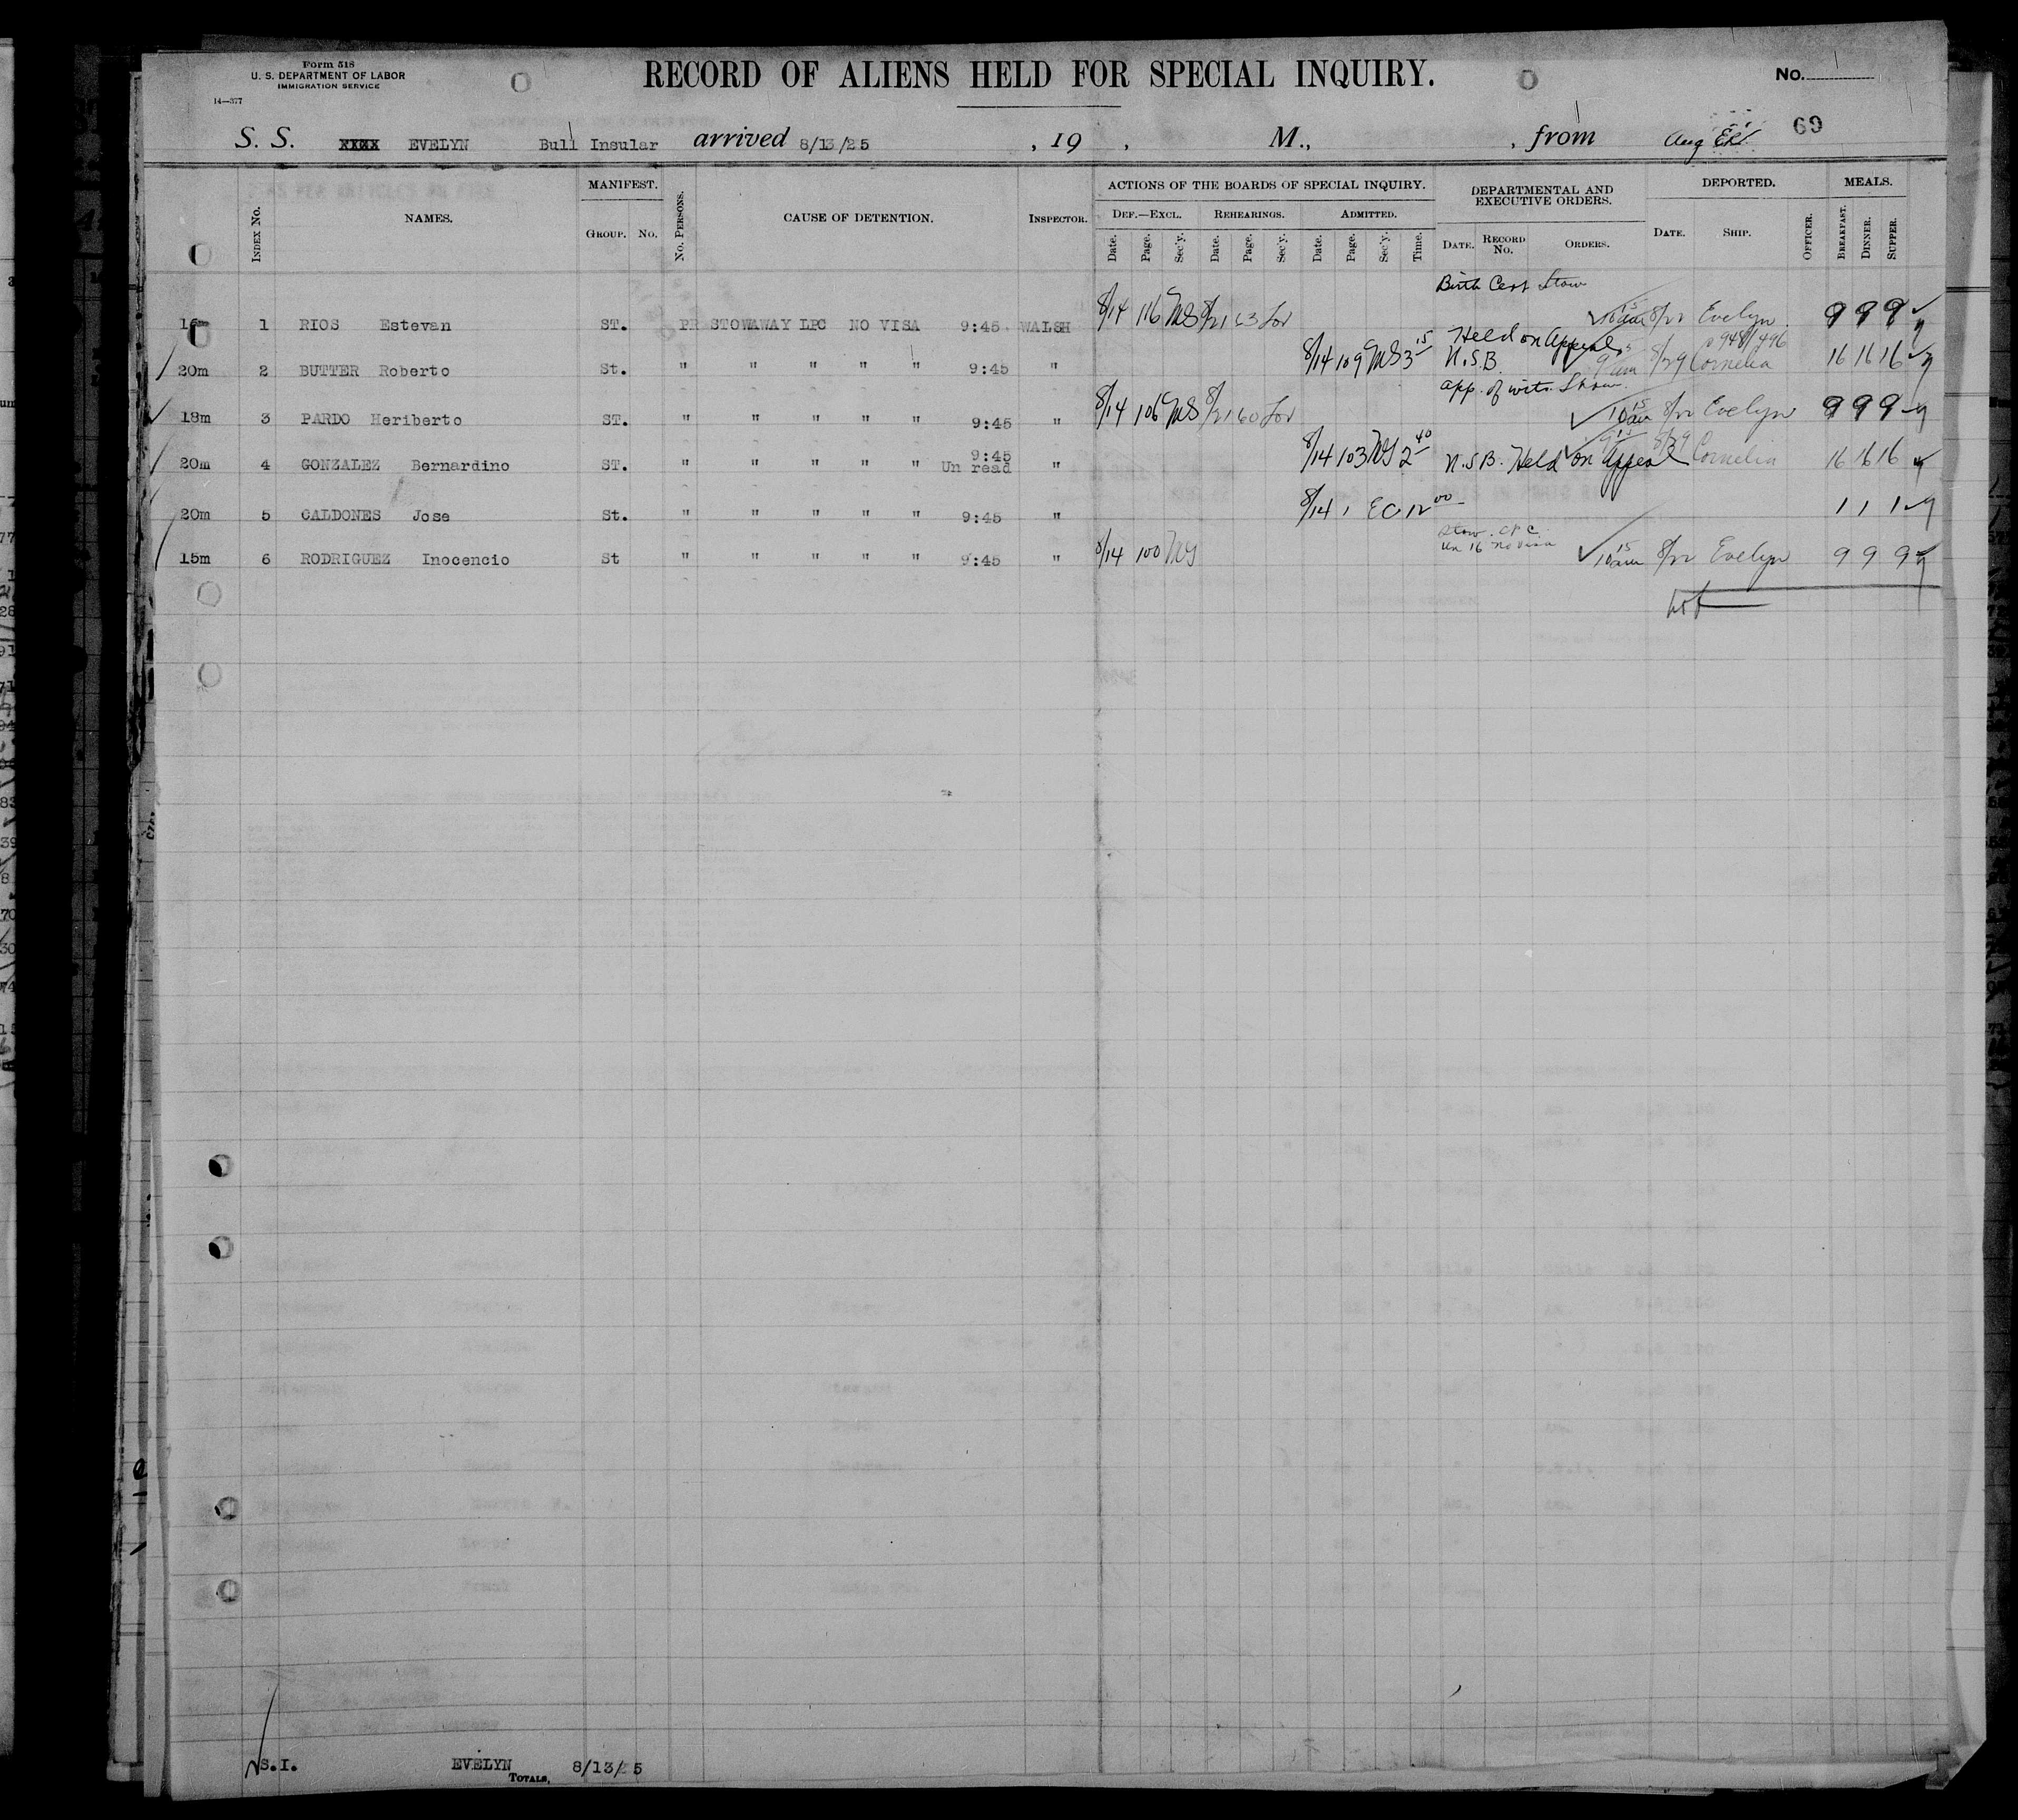 Form 518
U. S. DEPARTMENT OF LABOR
IMMIGRATION SERVICE
14—377
RECORD OF ALIENS HELD FOR SPECIAL INQUIRY.
No. 1
69
S. S. XXXX EVELYN Bull Insular arrived 8/13/25 , 19 , M., , from Aug
INDEX No. NAMES. MANIFEST. GROUP. No. No. PERSONS. CAUSE OF DETENTION. INSPECTOR. ACTIONS OF THE BOARDS OF SPECIAL INQUIRY. DEF.—EXCL. Date. Page. Sec'y. REHEARINGS. Date. Page. Sec'y. ADMITTED. Date. Page. Sec'y. Time. DEPARTMENTAL AND EXECUTIVE ORDERS. DATE. RECORD No. ORDERS. DEPORTED. DATE. SHIP. OFFICER. MEALS. BREAKFAST. DINNER. SUPPER.
Birth Cert Stow
16m 1 RIOS Estevan ST. PR STOWAWAY LPC NO VISA 9:45 WALSH 8/14 116 MS 8/21 63 10 15 am 8/22 Evelyn 9 9 9
Held on Appeal 948/496
20m 2 BUTTER Roberto St. " " " " " 9:45 " 8/14 109 MS 3 15 N.S.B. 9 am 8/29 Cornelia 16 16 16
app. of wits. Stow.
18m 3 PARDO Heriberto ST. " " " " " 9:45 " 8/14 106 MS 8/21 60 10 15 am 8/22 Evelyn 9 9 9
9:45
20m 4 GONZALEZ Bernardino ST. " " " " " Un read " 8/14 103 2 40 N.S.B. Held on Appeal 8/29 Cornelia 16 16 16
20m 5 CALDONES Jose St. " " " " " 9:45 " 8/14 1 EC 12 00 1 1 1
Stow. LPC
Un 16 no visa
15m 6 RODRIGUEZ Inocencio St " " " " " 9:45 " 8/14 100 10 15 am 8/22 Evelyn 9 9 9
S.I. EVELYN 8/13/25
TOTALS,